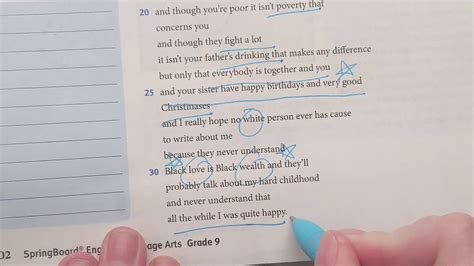 20 and though you're poor it isn't poverty that
concerns you
and though they fight a lot
it isn't your father's drinking that makes any difference
but only that everybody is together and you
25 and your sister have happy birthdays and very good
Christmases
and I really hope no white person ever has cause
to write about me
because they never understand
30 Black love is Black wealth and they'll
probably talk about my hard childhood
and never understand that
all the while I was quite happy.
02 SpringBoard® Eng age Arts Grade 9